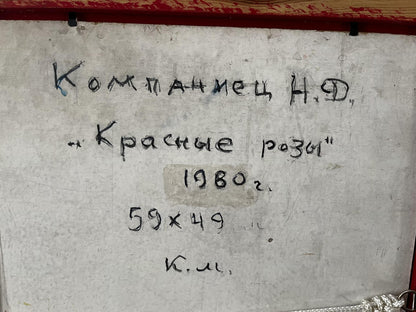 Компаниец Н.Д.
„Красные розы"
1980 г.
59x49
к.м.